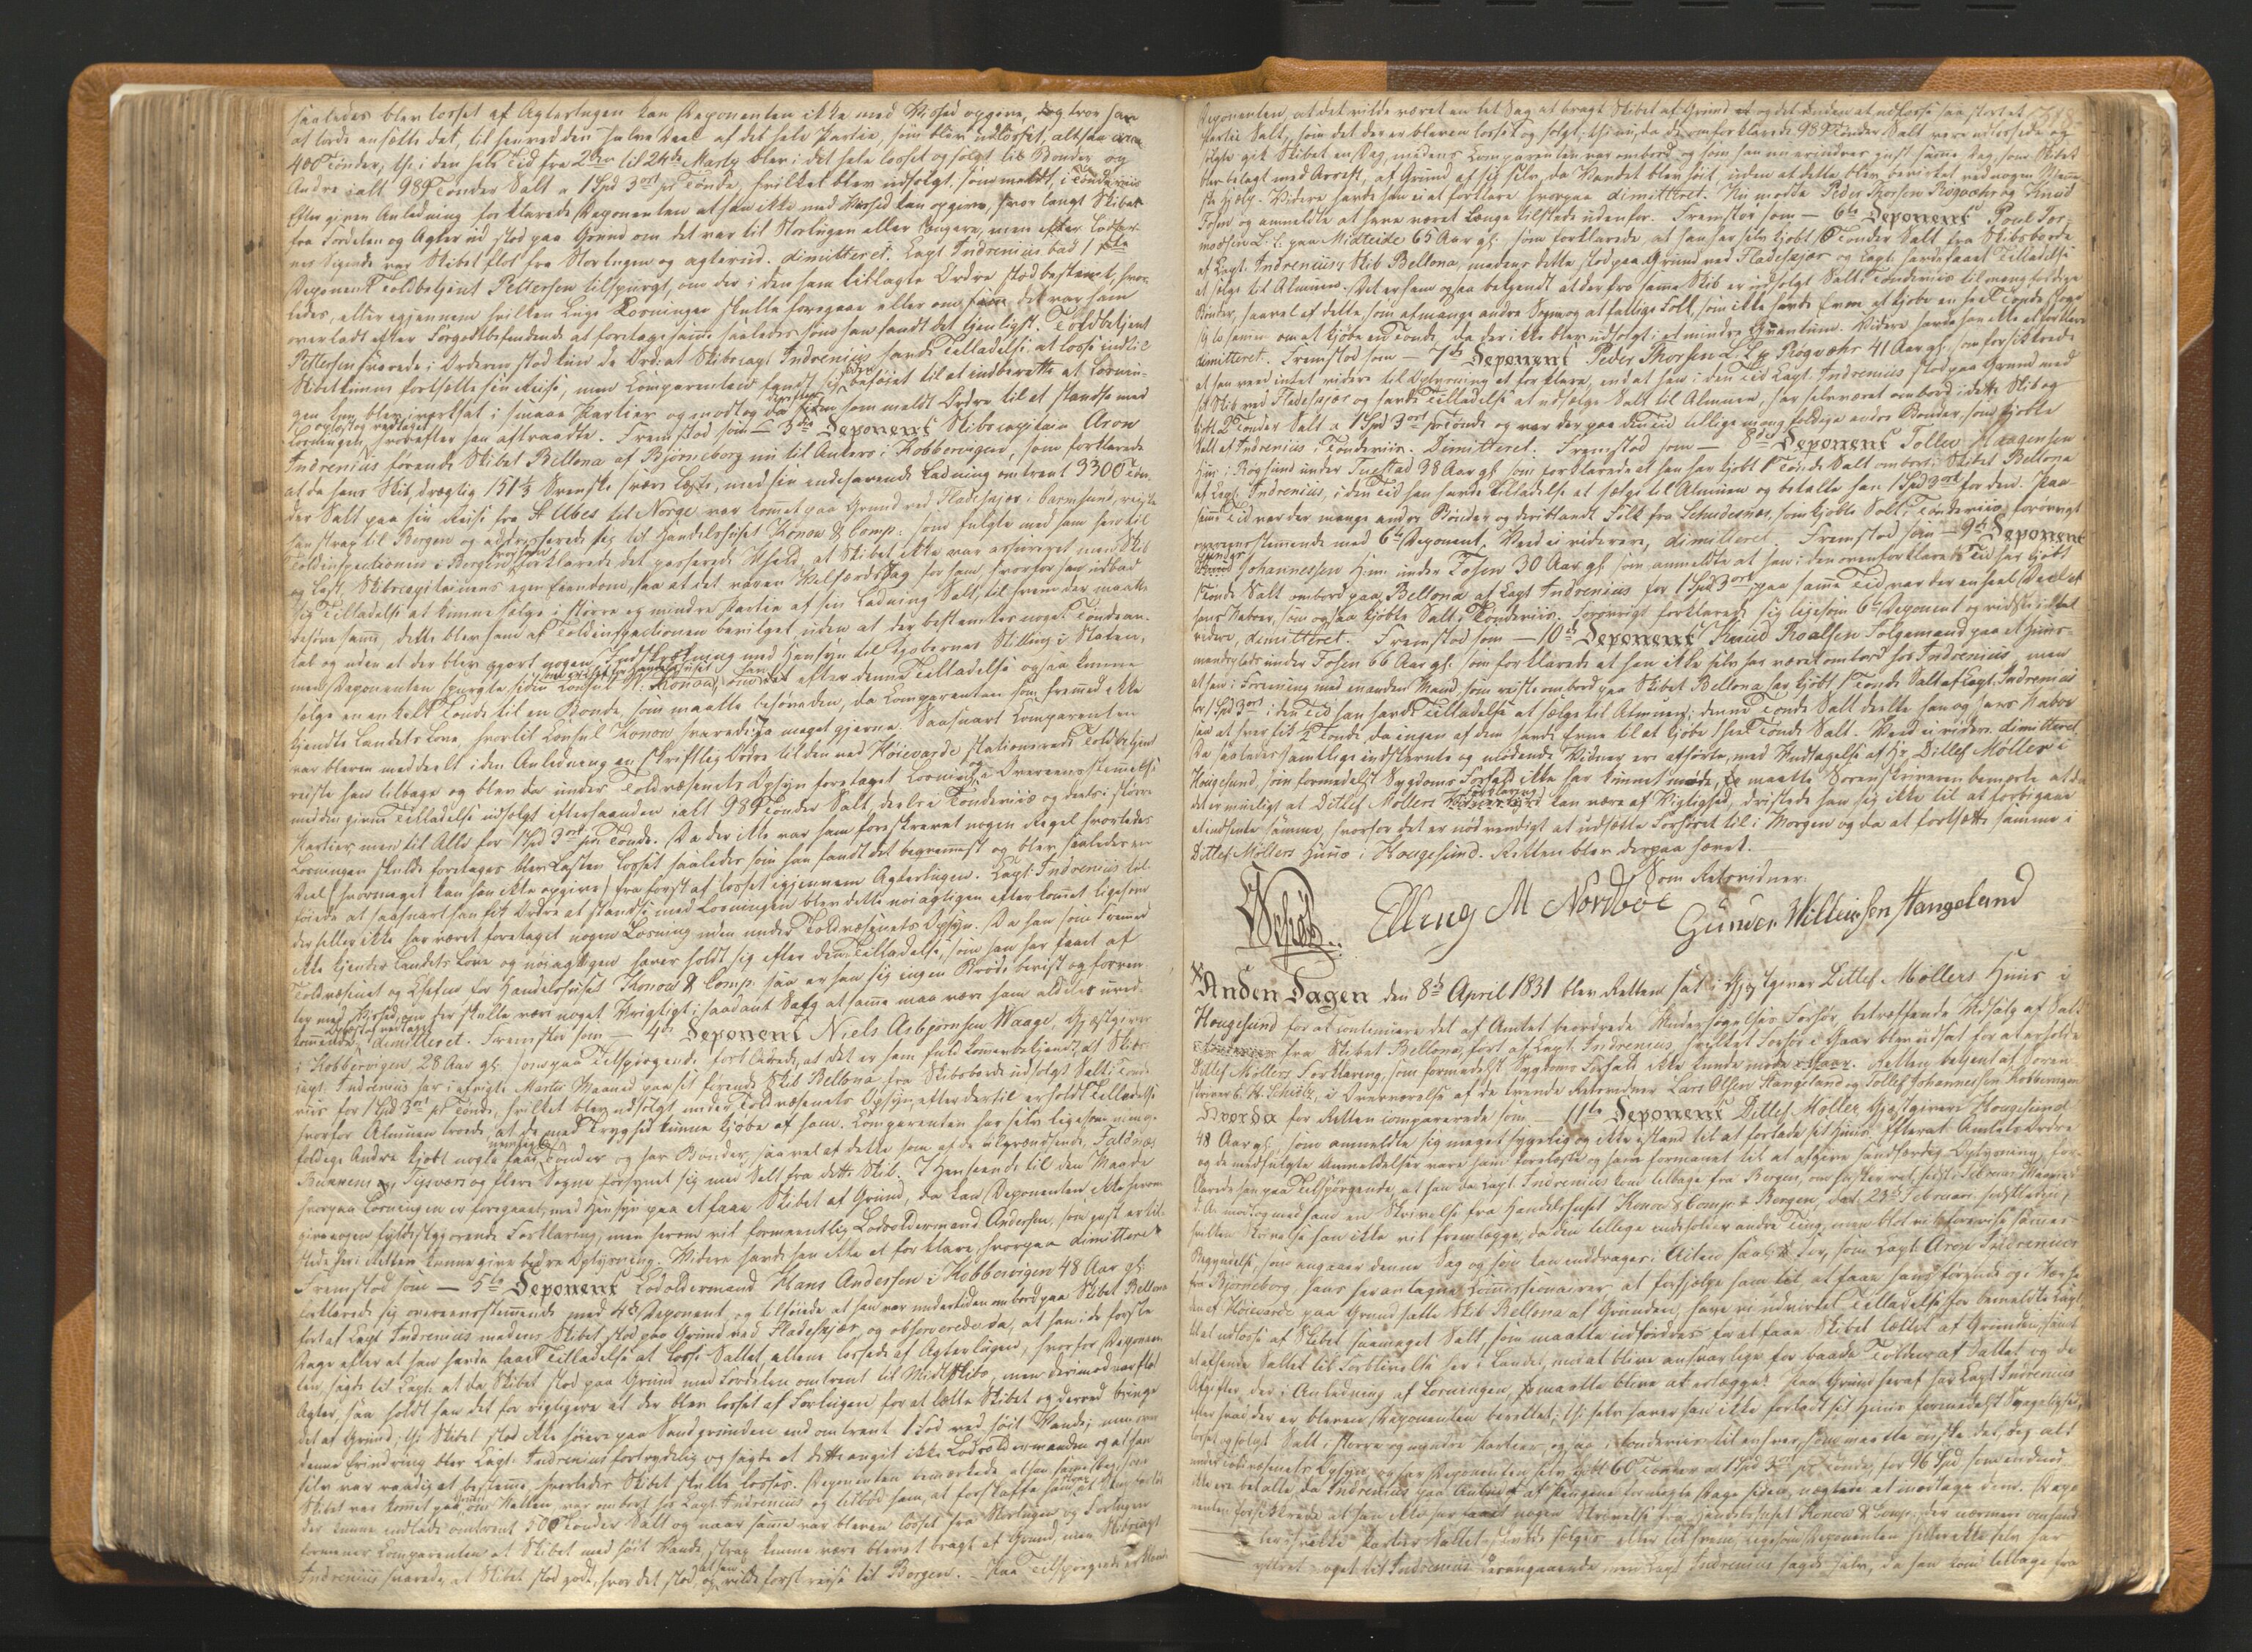 saaledes blev losset af Agterlugen kan Deponenten ikke med Vished opgive, dog tror han
at turde ansætte det, til henved den halve Deel af det hele Partie, som blev udlosset, altsaa circa
400 Tønder, thi i den hele Tid fra 2den til 24de Marty blev i det hele losset og solgt til Bønder og
Andre ialt 989 Tønder Salt a 1 Spd 3 ort pr Tønde, hvilket blev udsolgt, som meldt, i Tøndeviis
Efter given Anledning forklarede Deponenten at han ikke med Vished kan opgive, hvor langt Skibet
fra Fordelen og Agter ud stod paa Grund om det var til Storlugen eller længere, men efter Lodser-
nes Sigende var Skibet flot fra Storlugen og agterud. dimitteret. Capt Indrenius bad 1ste
Deponent Toldbetjent Pettersen tilspurgt, om der i den ham tillagte Ordre stod bestemt, hvor-
ledes, eller igjennem hvilken Luge Losningen skulde foregaae eller om det var ham
overladt efter Forgodtbefindende at foretage samme saaledes som han fandt det tjenligst. Toldbetjent
Pettersen svarede i Orderen stod kun de Ord: at Skibscapt Indrenius havde Tilladelse at losse indtil
Skibet kunne fortsætte sin Reise, men Comparenten fandt sig beføiet til at indberette at Losnin-
gen kun blev iværksat i smaae Partier og modtog da som meldt Ordre til at standse med
Losningen, hvorefter han aftraadte. Fremstod som - 3die Deponent Skibscapitain Aron
Indrenius førende Skibet Bellona af Björneborg nu til Ankers i Kobbervigen, som forklarede
at da hans Skib, drægtig 151 1/2 Svenske svære Læster, med sin indehavende Ladning omtrent 3300 Tøn-
der Salt paa sin Reise fra St Ubes til Norge var kommet paa Grund ved Fladeskjær i Carmsund, reiste
han strax til Bergen og adresserede sig til Handelshuset Konow & Comp: som fulgte med ham hen til
Toldinspectionen i Bergen hvor han forklarede det passerede Uheld, at Skibet ikke var assureret men Skib
og Last, Skibscapitainens egen Eiendom, saa at det var en Velfærdssag for ham hvorfor han udbad
sig Tilladelse at kunne sælge i større og mindre Partie af sin Ladning Salt, til hvem der maatte
behøve samme, dette blev ham af Toldinspectionen bevilget uden at der bestemtes noget Tønde an-
tal og uden at der blev gjort nogen Indskrænkning med Hensyn til Kjøbernes Stilling i Staten,
men Deponenten spurgte siden Consul W: Konow, om han efter denne Tilladelse ogsaa kunne
sælge en enkelt Tønde til en Bonde, som maatte behøve den, da Comparenten som fremmed ikke
kjendte Landets Love, hvortil Consul Konow svarede: Ja meget gjerne. Saasnart Comparenten
var bleven meddeelt i den Anledning en skriftlig Ordre til den ved Høievarde stationerede Toldbetjent
reiste han tilbage og blev da under Toldvæsenets Opsyn foretaget Losning og i Overeensstemmelse
med den givne Tilladelse udsolgt efterhaanden ialt 989 Tønder Salt, deels i Tøndeviis og deels i større
Partier men til Alle for 1 Spd 3 ort pr Tønde. Da der ikke var ham foreskrevet nogen Regel hvorledes
Losningen skulde foretages blev Lasten losset saaledes som han fandt det beqvemmest og blev saaledes en
Deel (hvormeget kan han ikke opgive) fra først af losset igjennem Agterlugen. Capt Indrenius til-
føiede at saasnart han fik Ordre at standse med Losningen blev dette nøiagtigen efterkommet ligesom
der heller ikke har været foretaget nogen Losning uden under Toldvæsenets Opsyn. Da han som fremmed
ikke kjender Landets Love og nøiagtigen haver holdt sig efter den Tilladelse, som han har faaet af
Toldvæsenet og Chefen for Handelshuset Konow & Comp: saa er han sig ingen Brøde bevist og forven-
ter med Vished, om her skulle være noget Urigtigt i saadant Salg at samme maa være ham aldeles uved-
kommende. dimitteret. Fremstod som - 4de Deponent Niels Asbjørnsen Waage, Gjæstgiver
i Kobbervigen, 28 Aar gl: som paa Tilspørgende forklarede, at det er ham fuldkommen bekjendt at Skibs
capt. Indrenius har i afvigte Martii Maaned paa sit førende Skib Bellona fra Skibsborde udsolgt Salt i Tønde-
viis for 1 Spd 3 ort pr Tønde, hvilket blev udsolgt under Toldvæsenets Opsyn, efter dertil erholdt Tilladelse
hvorfor Almuen troede, at de med Tryghed kunne kjøbe af ham. Comparenten har selv ligesom mang-
foldige Andre kjøbt nogle faae Tønder og har Bønder, saavel af dette som af de angrændsende, Faldnæs
Bukkens, Tysvær og flere Sogne forsynet sig med Salt fra dette Skib. I Henseende til den Maade
hvorpaa Losningen er foregaaet, med Hensyn paa at faae Skibet af Grund, da kan Deponenten ikke herom
give nogen fyldestgjørende Forklaring; men herom vil formeentlig Lodsoldermand Andersen, som just er til-
stede her i Retten kunne give bedre Oplysning. Videre havde han ikke at forklare, hvorpaa dimitteret
Fremstod som - 5te Deponent Lodsoldermand Hans Andersen i Kobbervigen 48 Aar gl:
erklærede sig overeensstemmende med 4de Deponent, og tilføiede at han var undertiden ombord paa Skibet Bellona
ført af Capt Indrenius medens Skibet stod paa Grund ved Fladeskjær, og observerede da, at han i de første
Dage efter at han havde faaet Tilladelse at losse Saltet, allene lossede af Agterlugen, hvorfor Deponen-
ten sagde til Capt: at da Skibet stod paa Grund med Fordelen omtrent til Midtskibs, men derimod var flot
Agter, saa holdt han det for rigtigere at der blev losset af Forlugen for at lette Skibet og derved bringe
det af Grund; thi Skibet stod ikke høiere paa Sandgrunden end omtrent 1 Fod ved høit Vande; men over
denne Erindring blev Capt Indrenius fortrydelig og sagde at dette angik ikke Lodsoldermanden og at han
selv var raadig at bestemme, hvorledes Skibet skulde losses. Deponenten bemærkede at han samme Dag, som
Skibet var kommet paa Grund om Natten var ombord hos Capt Indrenius og tilbød ham, at forskaffe ham
der kunne indlade omtrent 500 Tønder Salt og naar samme var bleven losset fra Storlugen og Forlugen
formener Comparenten at Skibet med høit Vande strax kunne være blevet bragt af Grund, men Skibscapt
Indrenius svarede, at Skibet stod godt, hvor det stod, og at han vilde først reise til Bergen. - Paa Tilspørgende erklærede
318
Deponenten, at det vilde været en let Sag at bragt Skibet af Grund og det uden at udlosse saa stort et
Partie Salt, som det der er bleven losset og solgt, thi nu, da de omforklarede 989 Tønder Salt vare udlossede og
solgte gik Skibet en Dag, medens Comparenten var ombord og som han nu erindrer just samme Dag, som Skibet
blev belagt med Arrest, af Grund af sig selv, da Vandet blev høit, uden at dette blev bevirket ved nogen Menne-
ske hjelp. Videre havde han ei at forklare hvorpaa dimitteret. Nu mødte Peder Thorsen Røgvæhr og Knud
Fosen og anmeldte at have været længe tilstede udenfor. Fremstod som - 6te Deponent Poul Tor-
modsen L. E. paa Midteide 65 Aar gl: som forklarede, at han har selv kjøbt 1 Tønder Salt fra Skibsborde
af Capt: Indrenius's Skib Bellona, medens dette stod paa Grund ved Fladeskjær og Capt: havde faaet Tilladelse
at sælge til Almuen. Det er ham ogsaa bekjendt at der fra samme Skib er udsolgt Salt i Tøndeviis til mangfoldige
Bønder, saavel af dette, som af mange andre Sogne og at fattige Folk, som ikke havde Evne at kjøbe en heel Tønde slog
sig tilsammen om at kjøbe en Tønde, da der ikke blev udsolgt i et mindre Qvantum. Videre havde han ikke at forklare
dimitteret. Fremstod som - 7de Deponent Peder Thorsen L. E. Røgvæhr 41 Aar gl: som forsikrede
at han veed intet videre til Oplysning at forklare, end at han i den Tid Capt. Indrenius stod paa Grund med
sit Skib ved Fladeskjær og havde Tilladelse at udsælge Salt til Almuen, har selv været ombord i dette Skib og
kjøbt 2 Tønder Salt a 1 Spd 3 ort pr Tønde og var der paa den Tid tillige mangfoldige andre Bønder, som kjøbte
Salt af Indrenius i Tøndeviis. Dimitteret. Fremstod som - 8de Deponent Tollev Haagensen
Huusmand i Røgsund under Tuestad 38 Aar gl: som forklarede at han har kjøbt 1 Tønde Salt ombord i Skibet Bellona
af Capt. Indrenius, i den Tid han havde Tilladelse at sælge til Almuen og betalte han 1 Spd 3 ort for den. Paa
samme Tid var der mange andre Bønder og deriblandt Folk fra Schudesnæs, som kjøbte Salt i Tøndeviis, forøvrigt
overeensstemmende med 6te Deponent. Veed ei videre, dimitteret. Fremstod som - 9de Deponent
Johannessen Huusmand under Fosen 30 Aar gl: som anmeldte at han i den ovenforklarede Tid har kjøbt
1 Tønde Salt ombord paa Bellona af Capt Indrenius for 1 Spd 3 ort; paa samme Tid var der en heel Deel af
hans Naboer, som ogsaa kjøbte Salt i Tøndeviis. Forøvrigt forklarede sig ligesom 6te Deponent og vidste ei
videre, dimitteret. Fremstod som - 10de Deponent Knud Roalsen Følgemand paa et Huus-
mandsplads under Fosen 66 Aar gl: som forklarede at han ikke selv har været ombord hos Indrenius, men
at han i Forening med en anden Mand, som reiste ombord paa Skibet Bellona har kjøbt 1 Tønde Salt af Capt: Indrenius
for 1 Spd 3 ort i den Tid han havde Tilladelse at sælge til Almuen; denne Tønde Salt deelte han og hans Nabo
saa at hver fik 1/2 Tønde da ingen af dem havde Evne til at kjøbe 1 heel Tønde Salt. Veed ei videre dimitteret.
Da saaledes samtlige indstevnte og mødende Vidner ere afhørte, med Undtagelse af Hr Ditlef Möller i
Hougesund, som formedelst Sygdoms Forfald ikke har kunnet møde, saa maatte Sorenskriveren bemærke at da
det er mueligt at Ditlef Möllers Forklaring kan være af Vigtighed, dristede han sig ikke til at forbigaae
at indhente samme, hvorfor det er nødvendigt at udsætte Forhøret til i Morgen og da at fortsætte samme i
Ditlef Möllers Huus i Hougesund. Retten blev derpaa hævet.
Som Retsvidner:
Schiøtz. Elling M Nordbøe Gunder Willeussen Stangeland
Anden Dagen den 8de April 1831 blev Retten sat i Gjæstgiver Ditlef Möllers Huus i
Hougesund for at continuere det af Amtet beordrede Undersøgelses Forhør, betræffende Udsalg af Salt
fra Skibet Bellona, ført af Capt. Indrenius, hvilket Forhør i Gaar blev udsat for at erholde
Ditlef Möllers Forklaring, som formedelst Sygdoms Forfald ikke kunde møde i Gaar. Retten betjent af Soren-
skriver C. H. Schiøtz, i Overværelse af de tvende Retsvidner Lars Olsen Stangeland og Tollef Johannessen Kobbervigen
Hvorda for Retten comparerede som - 11te Deponent Ditlef Möller Gjæstgiver i Hougesund
48 Aar gl: som anmeldte sig meget sygelig og ikke istand til at forlade sit Huus. Efterat Amtets Ordre
og de medfulgte Anmeldelser vare ham forelæste og han formanet til at afgive sandfærdig Oplysning, for-
klarede han paa Tilspørgende, at han da Capt. Indrenius kom tilbage fra Bergen, omtrent sidst i Februar Maaned
d. A. modtog med ham en Skrivelse fra Handelshuset Konow & Comp i Bergen, dat. 23de Februar sidstleden,
hvilken Skrivelse han ikke vil fremlægge, da den tillige indeholder andre Ting, men blot vil forevise sammes
Begyndelse, som angaaer denne Sag og som kan inddrages i Acten saalydende: som Capt Aron Indrenius
fra Björneborg, hans her antagne Commissionairer, at forhjelpe ham til, at faae hans førende og i Nærhe-
den af Høievarde paa Grund satte Skib Bellona af Grunden, have vi udvirket Tilladelse for bemeldte Capt
at udlosse af Skibet saameget Salt, som maatte udfordres for at faae Skibet lettet af Grunden, samt
at afhende Saltet til Forblivelse her i Landet, mod at blive ansvarlige for baade Tolden af Saltet og de
Afgifter, der i Anledning af Losningen, maatte blive at erlægge. Paa Grund heraf har Capt Indrenius
efter hvad der er bleven Deponenten berettet, thi selv haver han ikke forladt sit Huus formedelst Svagelighed,
losset og solgt Salt i større og mindre Partier, og saa i Tøndeviis til enhver, som maatte ønske det, dog alt
under Toldvæsenets Opsyn, og har Deponenten selv kjøbt 60 Tønder a 1 Spd 3 ort pr Tønde, for 96 Spd som endnu
ikke ere betalte, da Indrenius paa Anbud af Pengene for nogle Dage siden, nægtede at modtage dem. Depo-
nenten forsikkrede at han ikke har faaet nogen Skrivelse fra Handelshuset Konow & Comp: der nærmere omhand-
ler i hvilke Partier Saltet skulde sælges eller til hvem, ligesom Deponenten heller ikke selv har
yttret noget til Indrenius desangaaende men Capt Indrenius sagde selv, da han kom tilbage fra